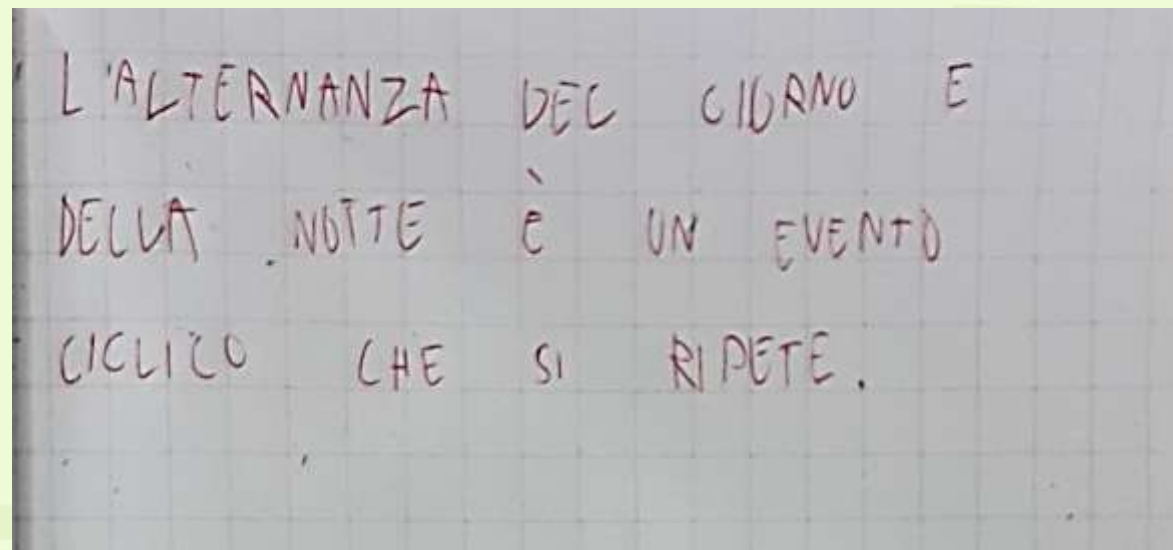 L'ALTERNANZA DEL GIORNO E
DELLA NOTTE è UN EVENTO
CICLICO CHE SI RIPETE.